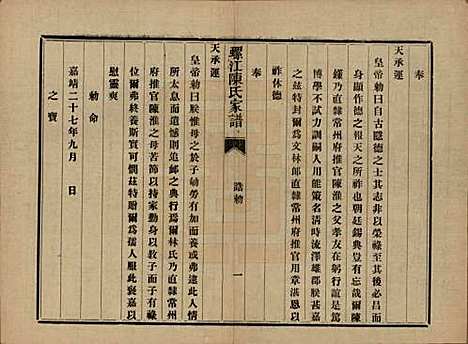 奉
天承運
皇帝勅曰自古隱德之士其志非以榮祿至其後必昌而
身顯作德之報天之所祚也朝廷錫典豈有忘哉爾陳
謹乃直隸常州府推官陳淮之父孝友在躬行誼是篤
博學不試力訓嗣人用能策名清時流澤雄郡朕甚嘉
之兹特封爾爲文林郎直隸常州府推官用章湛恩以
祚休德
奉
螺江陳氏家譜
誥勅
一
天承運
皇帝勅曰朕惟母之於子劬勞有加而養或弗逮此人情
所太息而遺憾則追卹之典行焉爾林氏乃直隸常州
府推官陳淮之母若節而以持家勤身以教子而子有
爾馬弗終養斯實可憫茲特贈爾爲孺人服此褒嘉以
慰靈爽
勅命
嘉靖二十七年九月　日
之寶